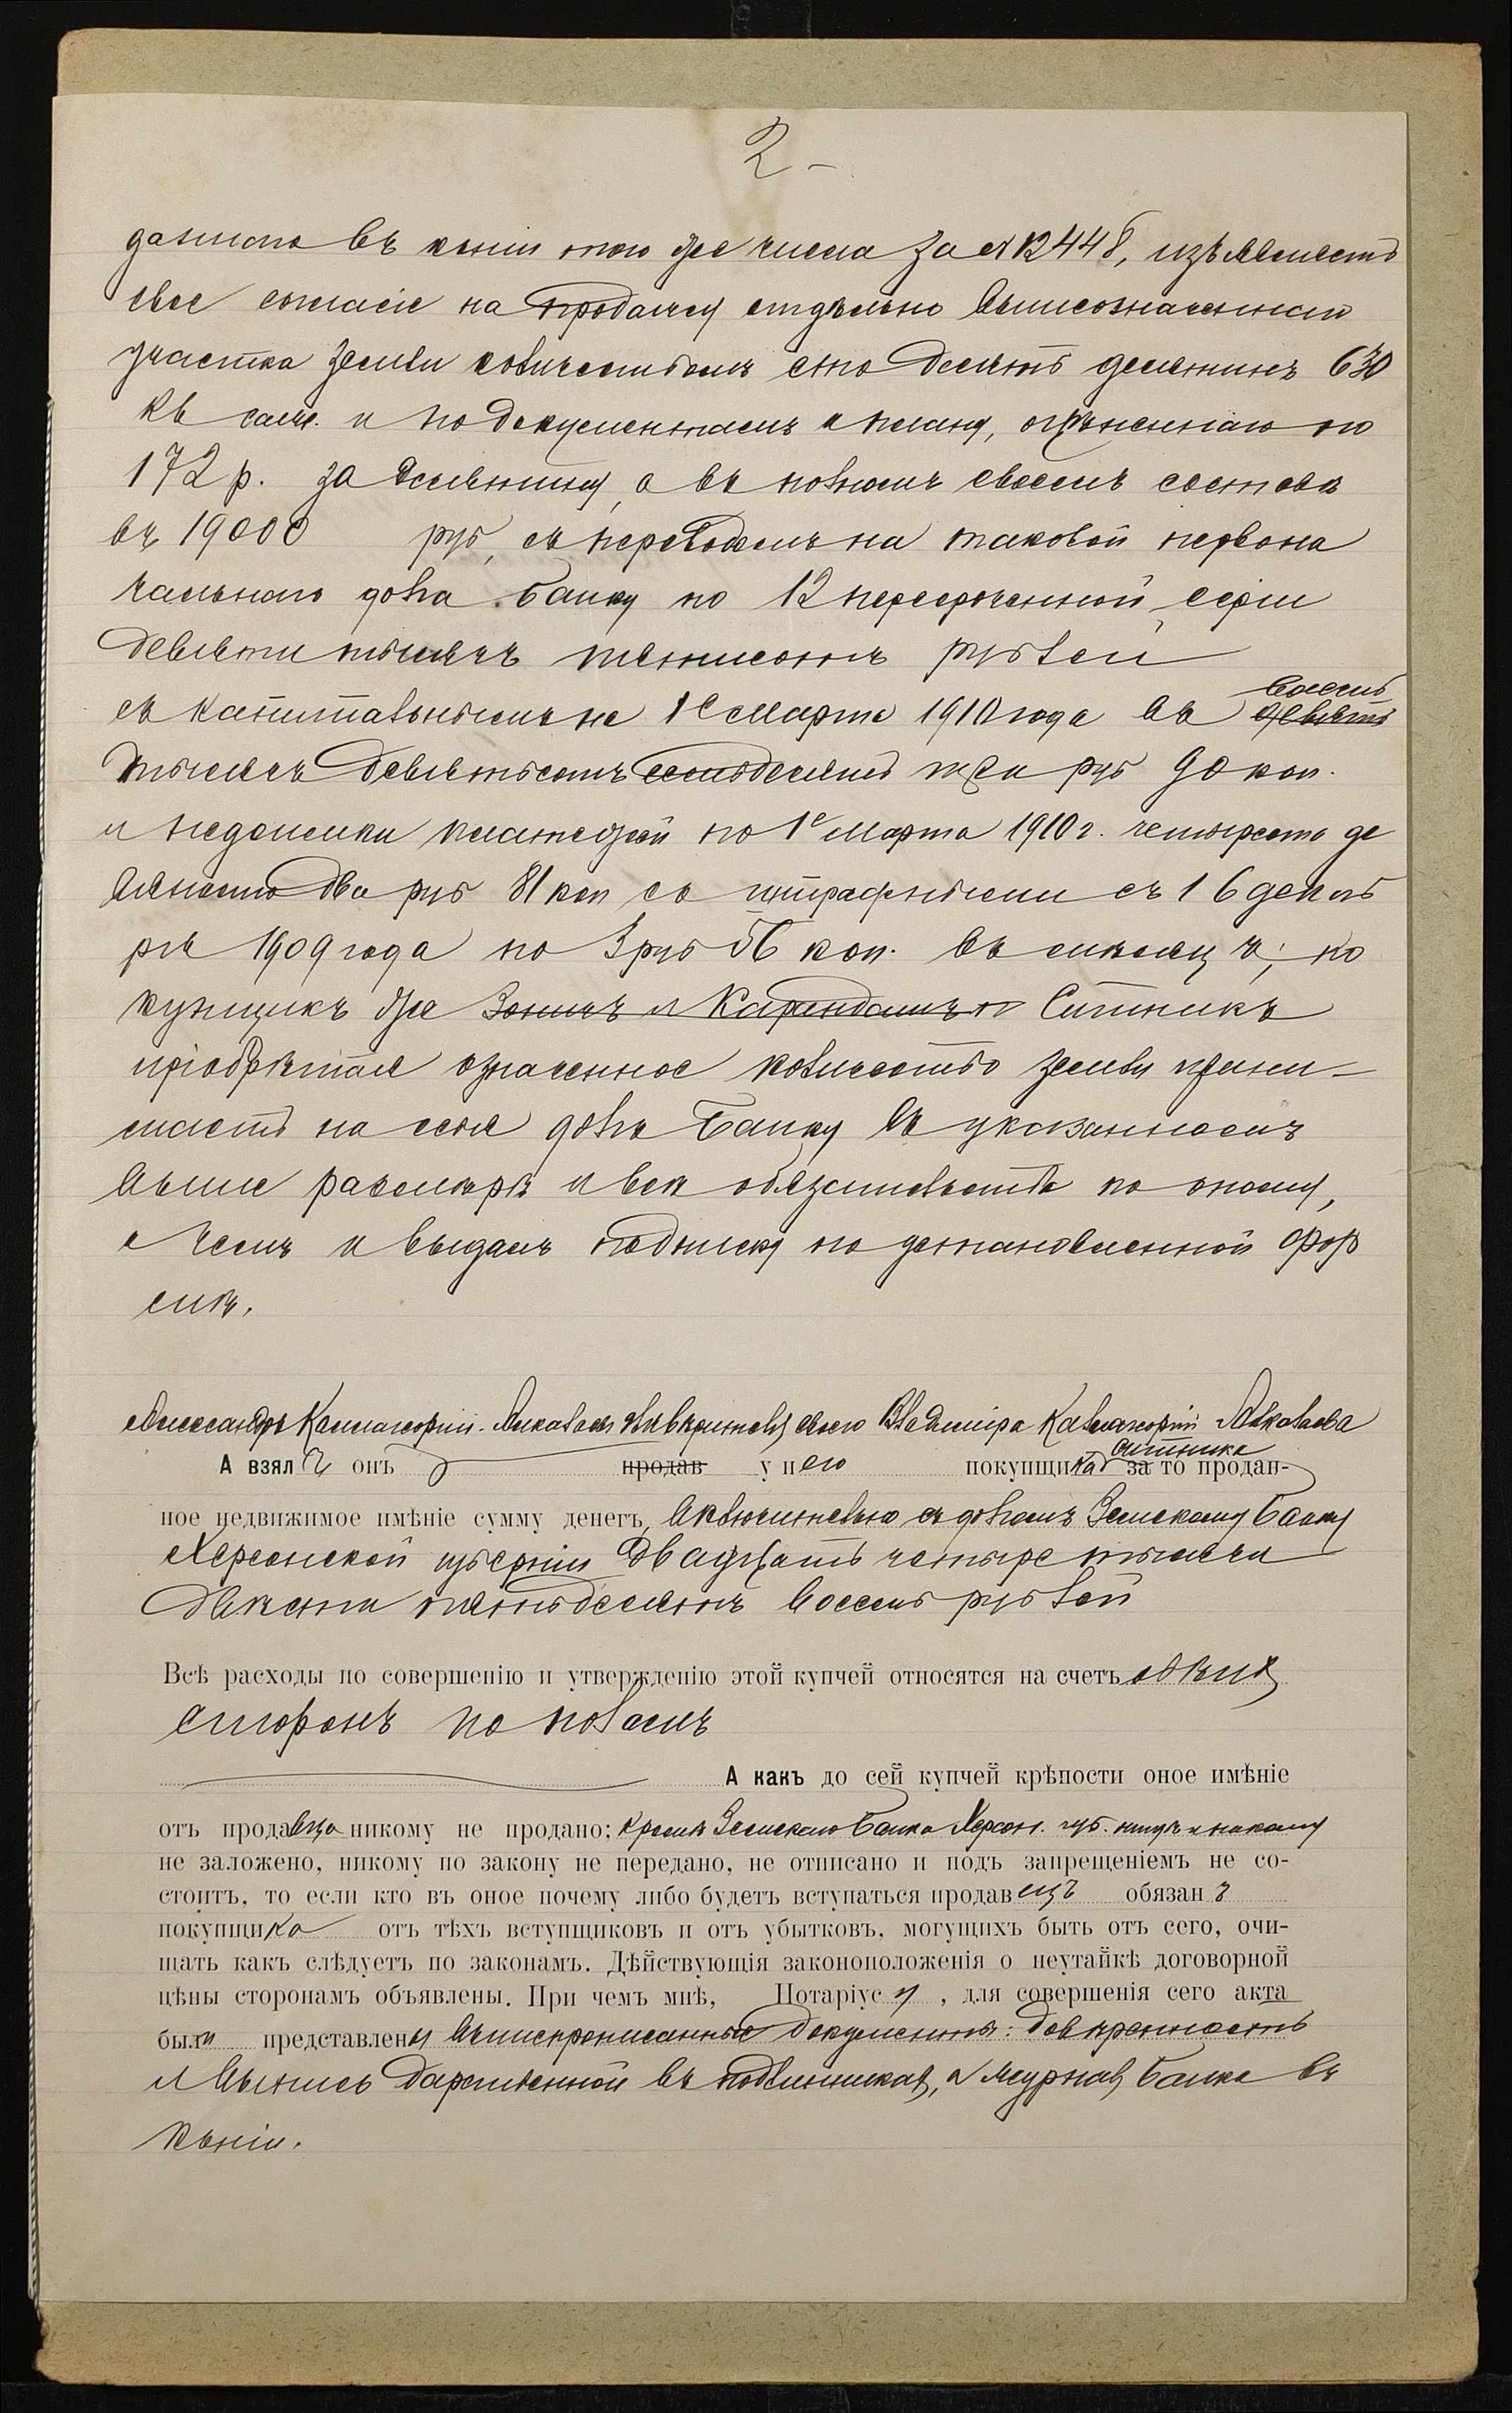 2 –
даннаго въ копіи того же числа за № 12448, изъявляетъ
свое согласіе на продажу отдѣльно вышеозначеннаго
участка земли количествомъ сто десять десятинъ 630
кв саж. и по документамъ и плану, оцѣненнаго по
172 р. за десятину, а въ полномъ своемъ составѣ
въ 19000 руб, съ переводомъ на таковой первона
чальнаго долга Банку по 12 пересроченной серіи
девяти тысячъ пятисотъ рублей
съ капитальнымъ на 1е Марта 1910 года въ восемь девять
тысячъ девятьсотъ семьдесятъ три руб 90 коп.
и недоимки платежей по 1е Марта 1910 г. четыреста де
вяносто два руб 81 коп со штрафными съ 16 декаб
ря 1909 года по 3 руб 56 коп. въ мѣсяцъ; по
купщикъ же и Ситникъ
пріобрѣтая означенное количество земли прини-
маетъ на себя долгъ Банку въ указанномъ
выше размѣрѣ и всѣ обязательства по оному,
о чемъ и выдалъ подписку по установленной фор
мѣ.
Александръ у вѣрителя своего Владиміра
А взялъ онъ продав у него покупщика Ситника за то продан-
ное недвижимое имѣніе сумму денегъ, включительно съ долгомъ Земскому Банку
Херсонской губерніи двадцать четыре тысячи
двѣсти пятьдесятъ восемь рублей
Всѣ расходы по совершенію и утвержденію этой купчей относятся на счетъ обѣихъ
сторонъ по поламъ
А какъ до сей купчей крѣпости оное имѣніе
отъ продавца никому не продано; кромѣ Земскаго Банка Херсон. губ. никому
не заложено, никому по закону не передано, не отписано и подъ запрещеніемъ не со-
стоитъ, то если кто въ оное почему либо будетъ вступаться продавецъ обязанъ
покупщика отъ тѣхъ вступщиковъ и отъ убытковъ, могущихъ быть отъ сего, очи-
щать какъ слѣдуетъ по законамъ. Дѣйствующія законоположенія о неутайкѣ договорной
цѣны сторонамъ объявлены. При чемъ мнѣ, Нотаріусу, для совершенія сего акта
были представлены вышепрописанные документы: довѣренность
и выпись дарственной въ подлинникахъ, а журналъ Банка въ
копіи.